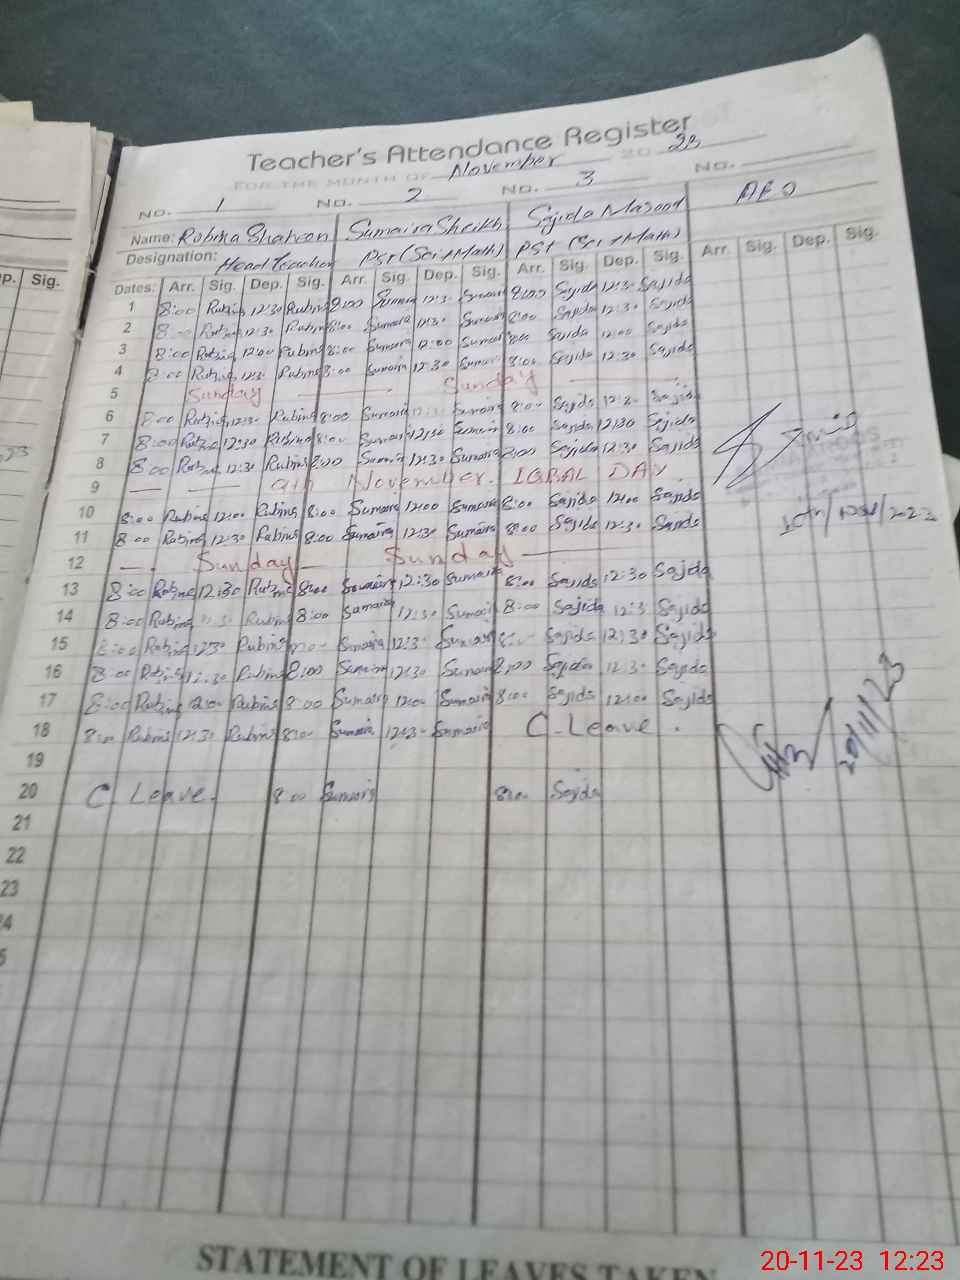 Teacher's Attendance Register
FOR THE MONTH OF November 20 23
No. 1 No. 2 No. 3 No.
Name: Robina Shaheen Sumaira Sheikh Sajida Masood AEO
Designation: Head Teacher PST (Sci+Math) PST (Sci+Math)
Dep. Sig. Dates: Arr. Sig. Dep. Sig. Arr. Sig. Dep. Sig. Arr. Sig. Dep. Sig. Arr. Sig. Dep. Sig.
1 8:00 Rubina 12:30 Rubina 8:00 Sumaira 12:30 Sumaira 8:00 Sajida 12:30 Sajida
2 8:00 Rubina 12:30 Rubina 8:00 Sumaira 12:30 Sumaira 8:00 Sajida 12:30 Sajida
3 8:00 Rubina 12:00 Rubina 8:00 Sumaira 12:00 Sumaira 8:00 Sajida 12:00 Sajida
4 8:00 Rubina 12:30 Rubina 8:00 Sumaira 12:30 Sumaira 8:00 Sajida 12:30 Sajida
5 Sunday Sunday
6 8:00 Rubina 12:30 Rubina 8:00 Sumaira 12:30 Sumaira 8:00 Sajida 12:30 Sajida
7 8:00 Rubina 12:30 Rubina 8:00 Sumaira 12:30 Sumaira 8:00 Sajida 12:30 Sajida
8 8:00 Rubina 12:30 Rubina 8:00 Sumaira 12:30 Sumaira 8:00 Sajida 12:30 Sajida
9 9th November. IQBAL DAY
10 8:00 Rubina 12:00 Rubina 8:00 Sumaira 12:00 Sumaira 8:00 Sajida 12:00 Sajida
10th/Nov/2023
11 8:00 Rubina 12:30 Rubina 8:00 Sumaira 12:30 Sumaira 8:00 Sajida 12:30 Sajida
12 Sunday Sunday
13 8:00 Rubina 12:30 Rubina 8:00 Sumaira 12:30 Sumaira 8:00 Sajida 12:30 Sajida
14 8:00 Rubina 12:30 Rubina 8:00 Sumaira 12:30 Sumaira 8:00 Sajida 12:30 Sajida
15 8:00 Rubina 12:30 Rubina 8:00 Sumaira 12:30 Sumaira 8:00 Sajida 12:30 Sajida
16 8:00 Rubina 12:30 Rubina 8:00 Sumaira 12:30 Sumaira 8:00 Sajida 12:30 Sajida
17 8:00 Rubina 12:00 Rubina 8:00 Sumaira 12:00 Sumaira 8:00 Sajida 12:00 Sajida
18 8:00 Rubina 12:30 Rubina 8:00 Sumaira 12:30 Sumaira C. Leave.
20/11/23
19
20 C Leave. 8:00 Sumaira 8:00 Sajida
21
22
23
24
STATEMENT OF LEAVES TAKEN
20-11-23 12:23